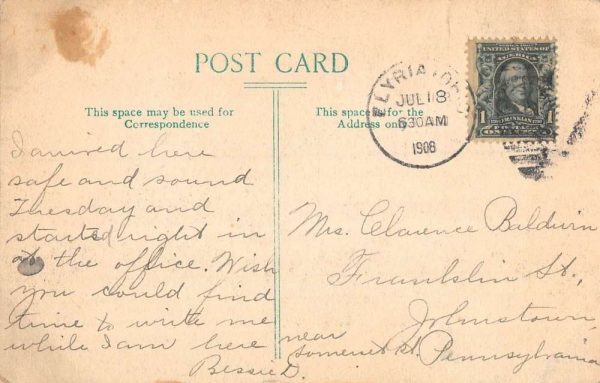 POST CARD
This space may be used for
Correspondence
This space is for the
Address only
ELYRIA, OHIO
JUL 18
630AM
1908
UNITED STATES OF
AMERICA
FRANKLIN
1 1
I arrived here
safe and sound
Tuesday and
started right in
at the office. Wish
you could find
time to write me
while I am here
Bessie D.
Mrs. Clarence Baldwin
Franklin St.,
Johnstown,
near
Somerset St. Pennsylvania